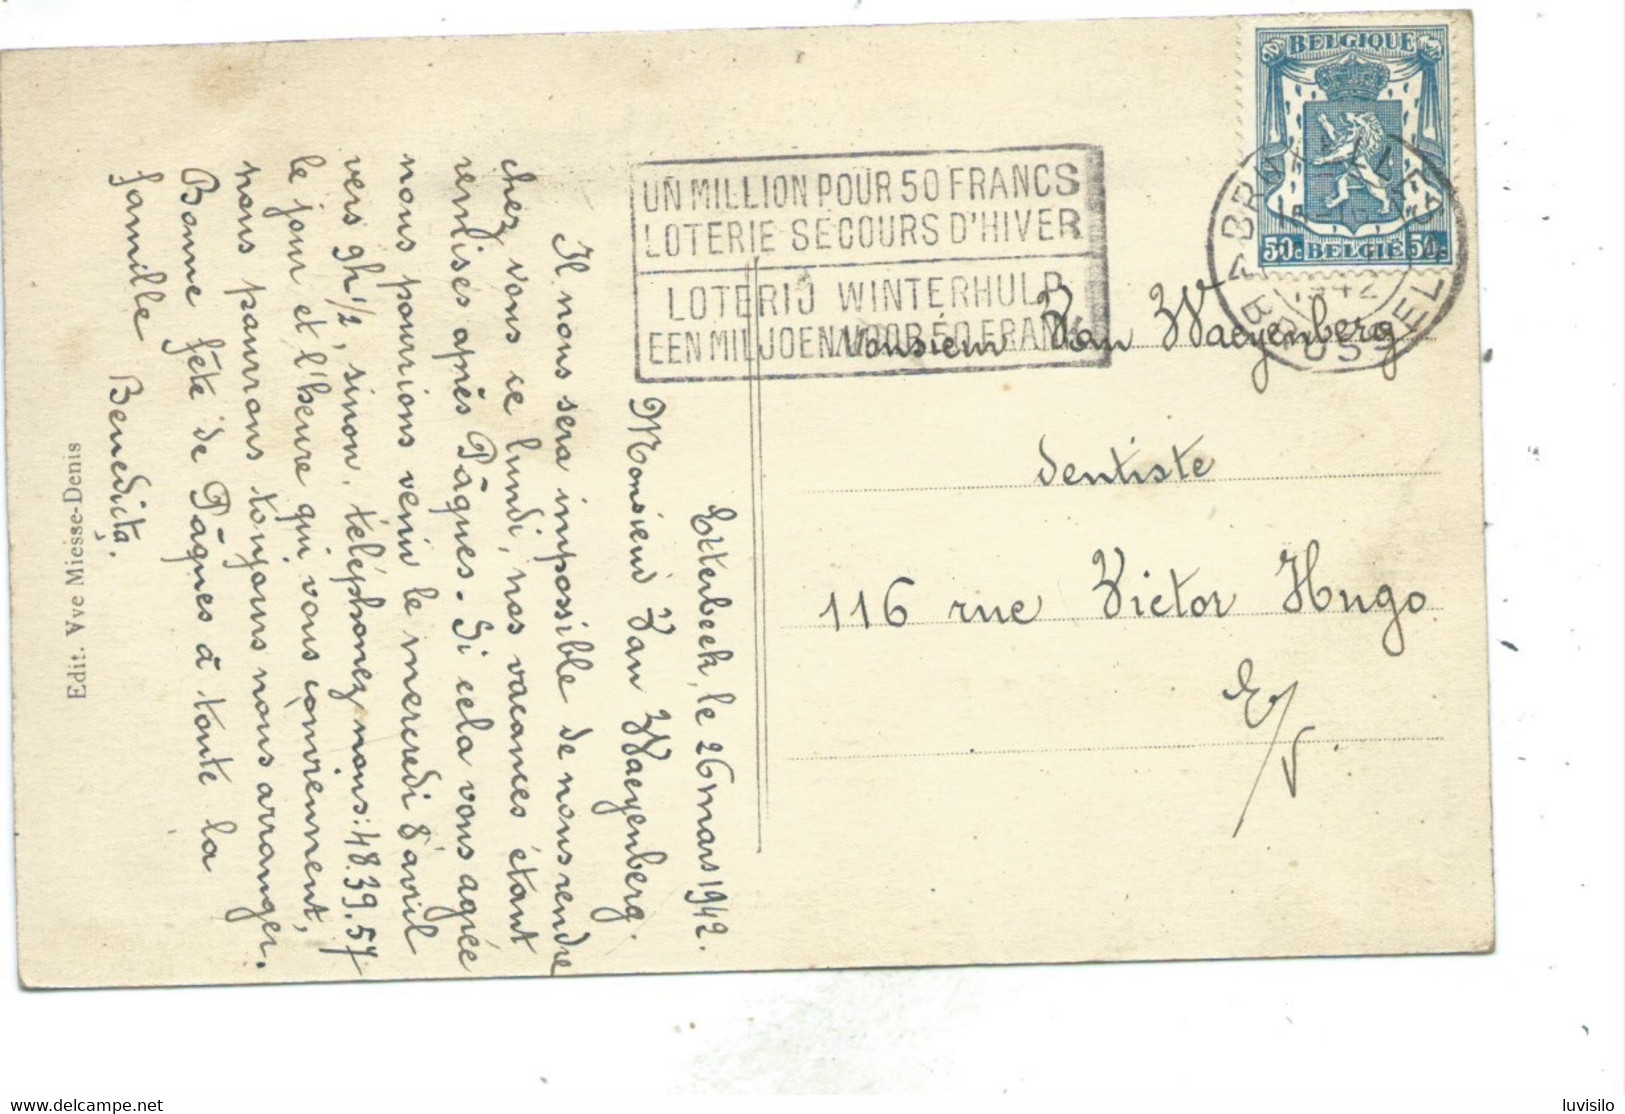 BELGIQUE
50c BELGIË 50c
BRUXELLES
1942
BRUSSEL
UN MILLION POUR 50 FRANCS
LOTERIE SECOURS D'HIVER
LOTERIJ WINTERHULP
EEN MILJOEN VOOR 50 FRANK
Monsieur Van Waeyenberg
dentiste
116 rue Victor Hugo
E/V.
Etterbeek, le 26 mars 1942.
Monsieur Van Waeyenberg.
Il nous sera impossible de nous rendre
chez vous ce lundi, nos vacances étant
remises après Pâques. Si cela vous agrée
nous pourrions venir le mercredi 8 avril
vers 9h 1/2, sinon, téléphonez nous: 48.39.57
le jour et l'heure qui vous conviennent,
nous pourrons toujours nous arranger.
Bonne fête de Pâques à toute la
famille
Benedicta.
Edit. Vve Miesse-Denis
luvisilo